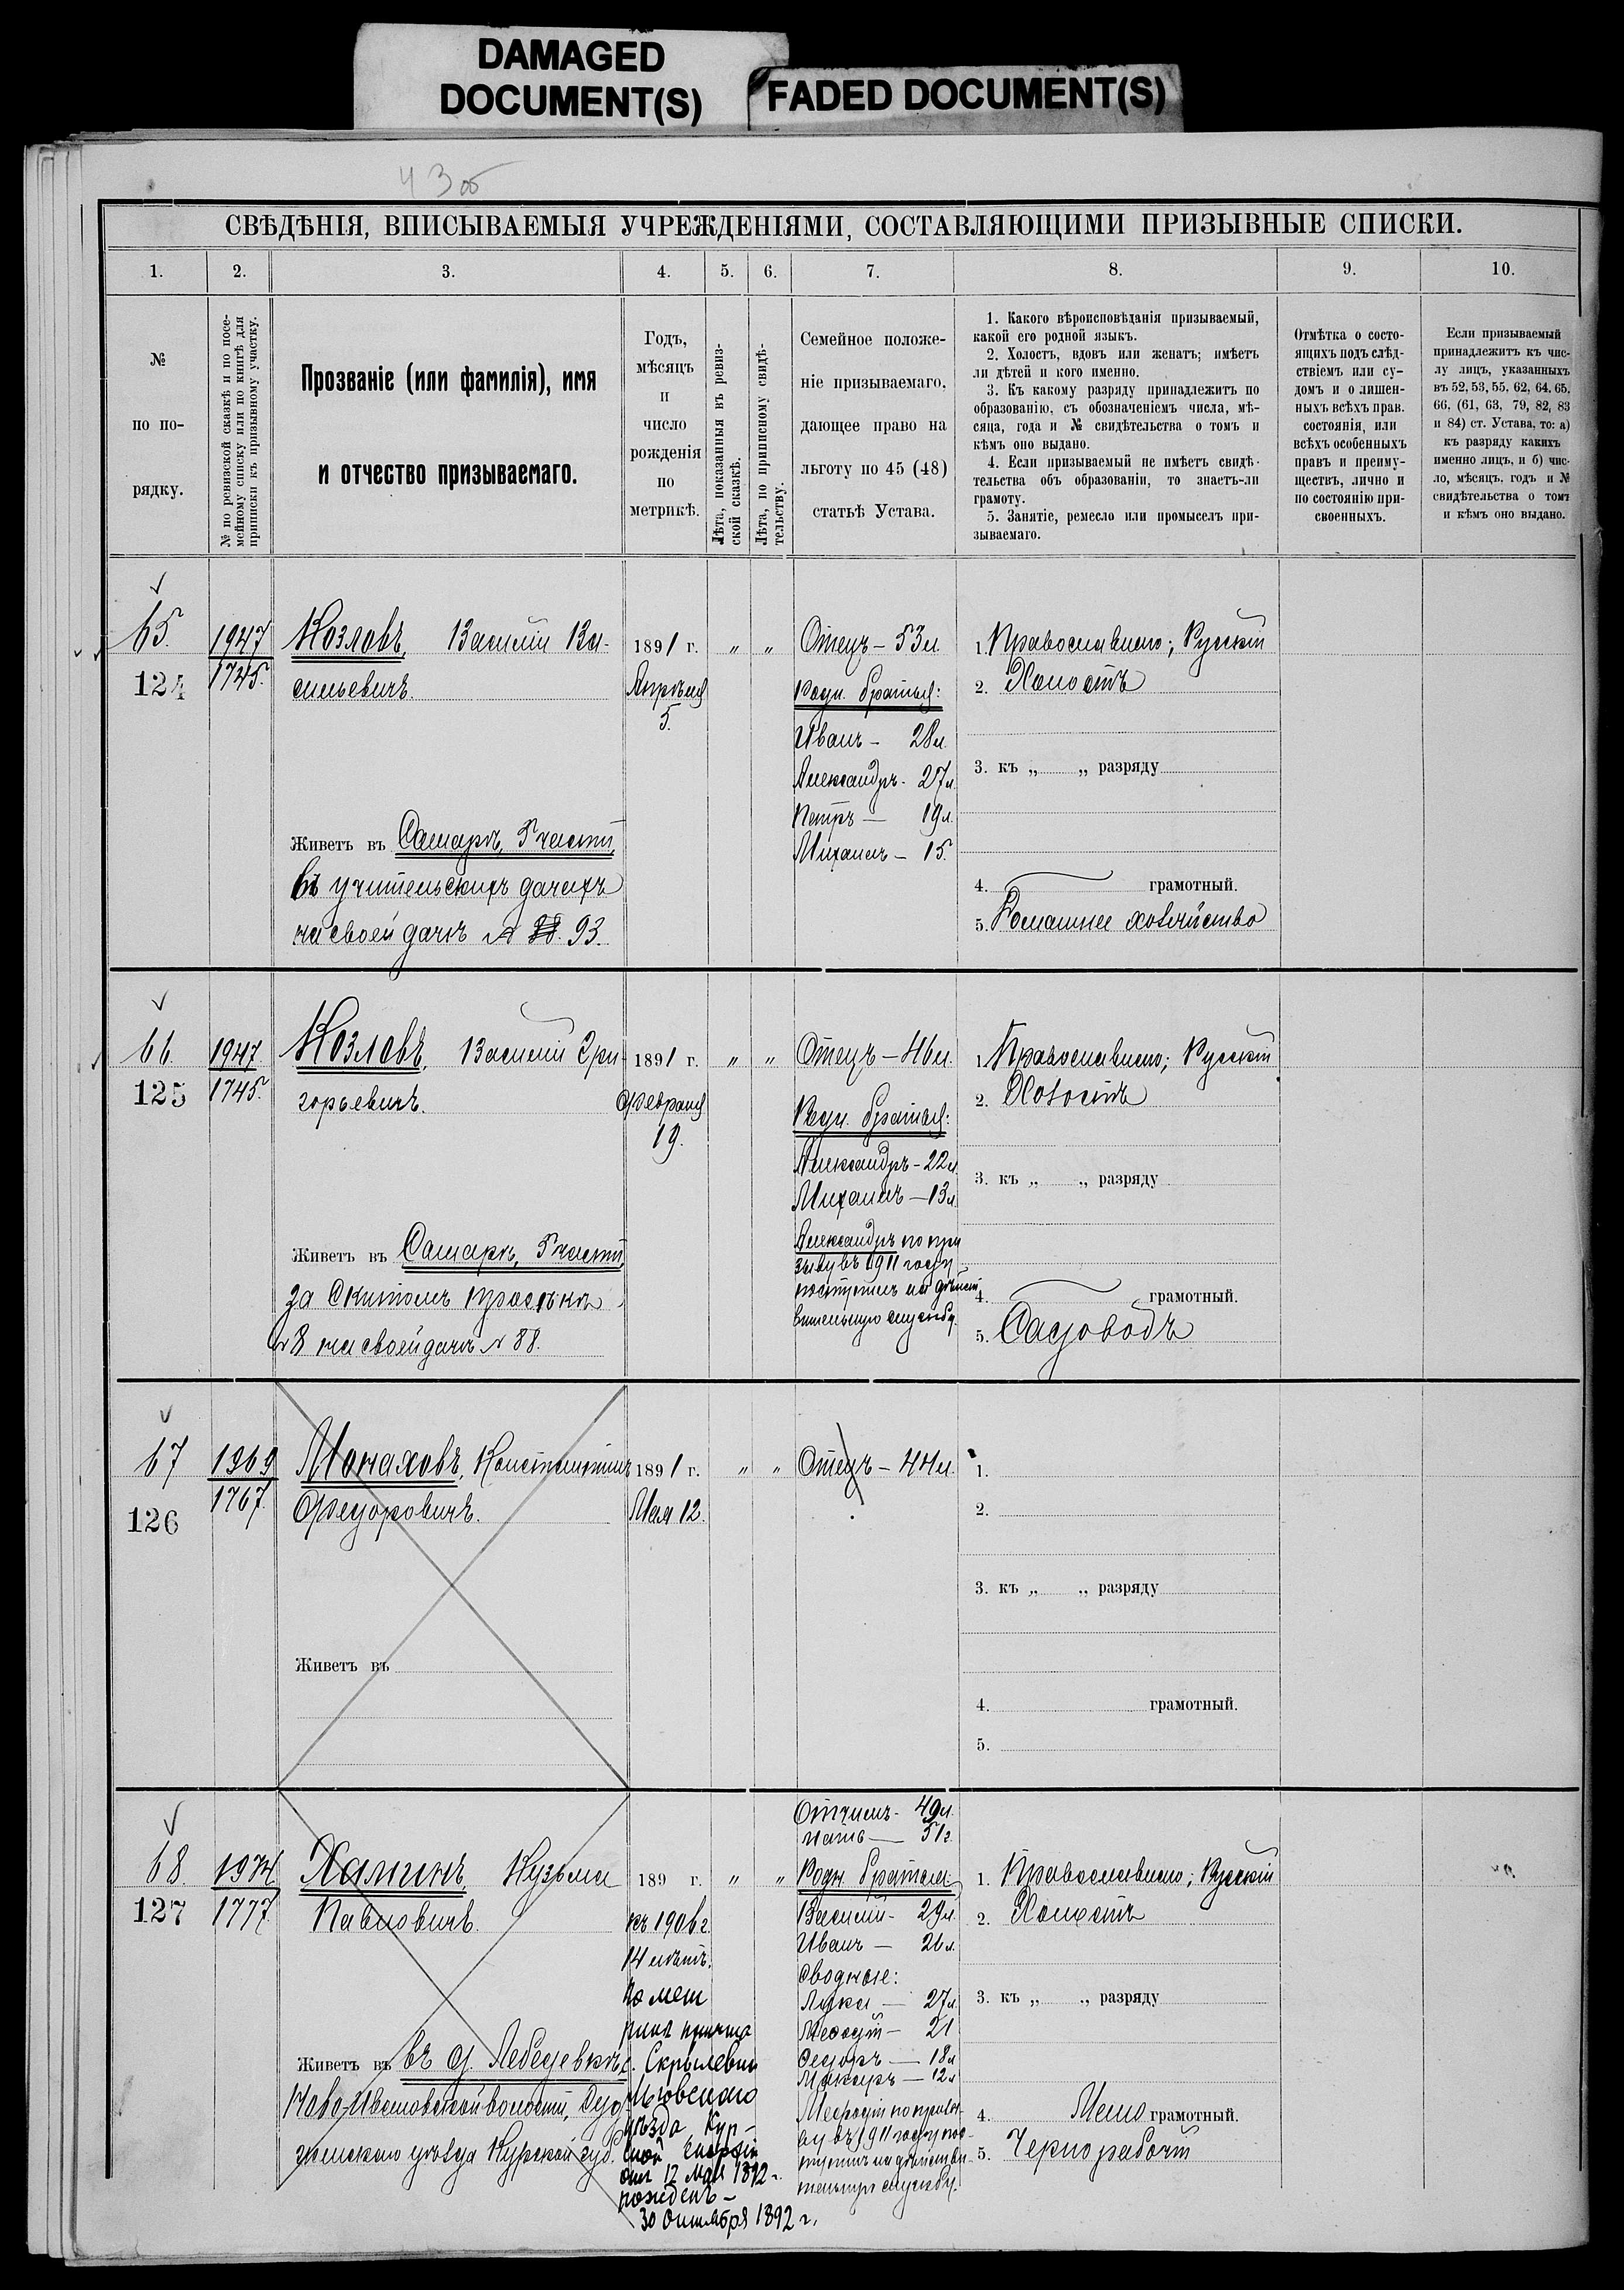 DAMAGED
DOCUMENT(S)
FADED DOCUMENT(S)
43 об
СВѢДѢНІЯ, ВПИСЫВАЕМЫЯ УЧРЕЖДЕНІЯМИ, СОСТАВЛЯЮЩИМИ ПРИЗЫВНЫЕ СПИСКИ.
1. 2. 3. 4. 5. 6. 7. 8. 9. 10.
№
по по-
рядку.
№ по ревизской сказкѣ и по посе-
мейному списку или по книгѣ для
приписки къ призывному участку.
Прозваніе (или фамилія), имя
и отчество призываемаго.
Годъ,
мѣсяцъ
и
число
рожденія
по
метрикѣ.
Лѣта, показанныя въ ревиз-
ской сказкѣ.
Лѣта, по приписному свидѣ-
тельству.
Семейное положе-
ніе призываемаго,
дающее право на
льготу по 45 (48)
статьѣ Устава.
1. Какого вѣроисповѣданія призываемый,
какой его родной языкъ.
2. Холостъ, вдовъ или женатъ; имѣетъ
ли дѣтей и кого именно.
3. Къ какому разряду принадлежитъ по
образованію, съ обозначеніемъ числа, мѣ-
сяца, года и № свидѣтельства о томъ и
кѣмъ оно выдано.
4. Если призываемый не имѣетъ свидѣ-
тельства объ образованіи, то знаетъ-ли
грамоту.
5. Занятіе, ремесло или промыселъ при-
зываемаго.
Отмѣтка о состо-
ящихъ подъ слѣд-
ствіемъ или су-
домъ и о лишен-
ныхъ всѣхъ прав.
состоянія, или
всѣхъ особенныхъ
правъ и преиму-
ществъ, лично и
по состоянію при-
своенныхъ.
Если призываемый
принадлежитъ къ чис-
лу лицъ, указанныхъ
въ 52, 53, 55, 62, 64, 65,
66, (61, 63, 79, 82, 83
и 84) ст. Устава, то: а)
къ разряду какихъ
именно лицъ, и б) чис-
ло, мѣсяцъ, годъ и №
свидѣтельства о томъ
и кѣмъ оно выдано.
65.
124
1947
1745.
Козловъ, Василій Ва-
сильевичъ.
Живетъ въ Самарѣ, 5 части,
въ учительскихъ дачахъ
на своей дачѣ № 88. 93.
1891 г.
Апрѣля
5.
„ „
Отецъ – 53 л.
Родн. братья:
Иванъ – 28 л.
Александръ – 27 л.
Петръ – 19 л.
Михаилъ – 15.
1. Православнаго; Русскій
2. Холостъ
3. къ „ „ разряду
4. грамотный.
5. Домашнее хозяйство
66.
125
1947
1745.
Козловъ, Василій Гри-
горьевичъ.
Живетъ въ Самарѣ, 5 части,
за Скитомъ просѣка
№ 8 на своей дачѣ № 88.
1891 г.
Февраля
19.
„ „
Отецъ – 46 л.
Родн. братья:
Александръ – 22 л.
Михаилъ – 13 л.
Александръ по при
зыву въ 1911 году
поступилъ на дѣйст
вительную службу.
1. Православнаго; Русскій
2. Холостъ
3. къ „ „ разряду
4. грамотный.
5. Садоводъ
67
126
1969
1767.
Монаховъ, Константинъ
Федоровичъ.
Живетъ въ
1891 г.
Мая 12.
„ „
Отецъ – 44 л.
1.
2.
3. къ „ „ разряду
4. грамотный.
5.
68.
127
1974
1777.
Хаминъ, Кузьма
Павловичъ.
Живетъ въ въ д. Лебедевкѣ,
Ново-Ивановской волости, Суд-
жанскаго уѣзда Курской губ.
189 г.
къ 1906 г.
14 лѣтъ.
По мет
рикѣ причта
с. Скрылевки
Льговскаго
уѣзда Кур-
ской епархіи
12 мая 1892 г.
рожденъ –
30 октября 1892 г.
„ „
Отчимъ – 49 л.
мать – 51 г.
Родн. братья:
Василій – 29 л.
Иванъ – 26 л.
Сводные:
Лука – 27 л.
Меѳодій – 21
Федоръ – 18 л.
Макаръ – 12 л.
Меѳодій по призы-
ву въ 1911 году пос-
тупилъ на дѣйстви-
тельную службу.
1. Православнаго; Русскій
2. Холостъ
3. къ „ „ разряду
4. Мало грамотный.
5. Чернорабочій